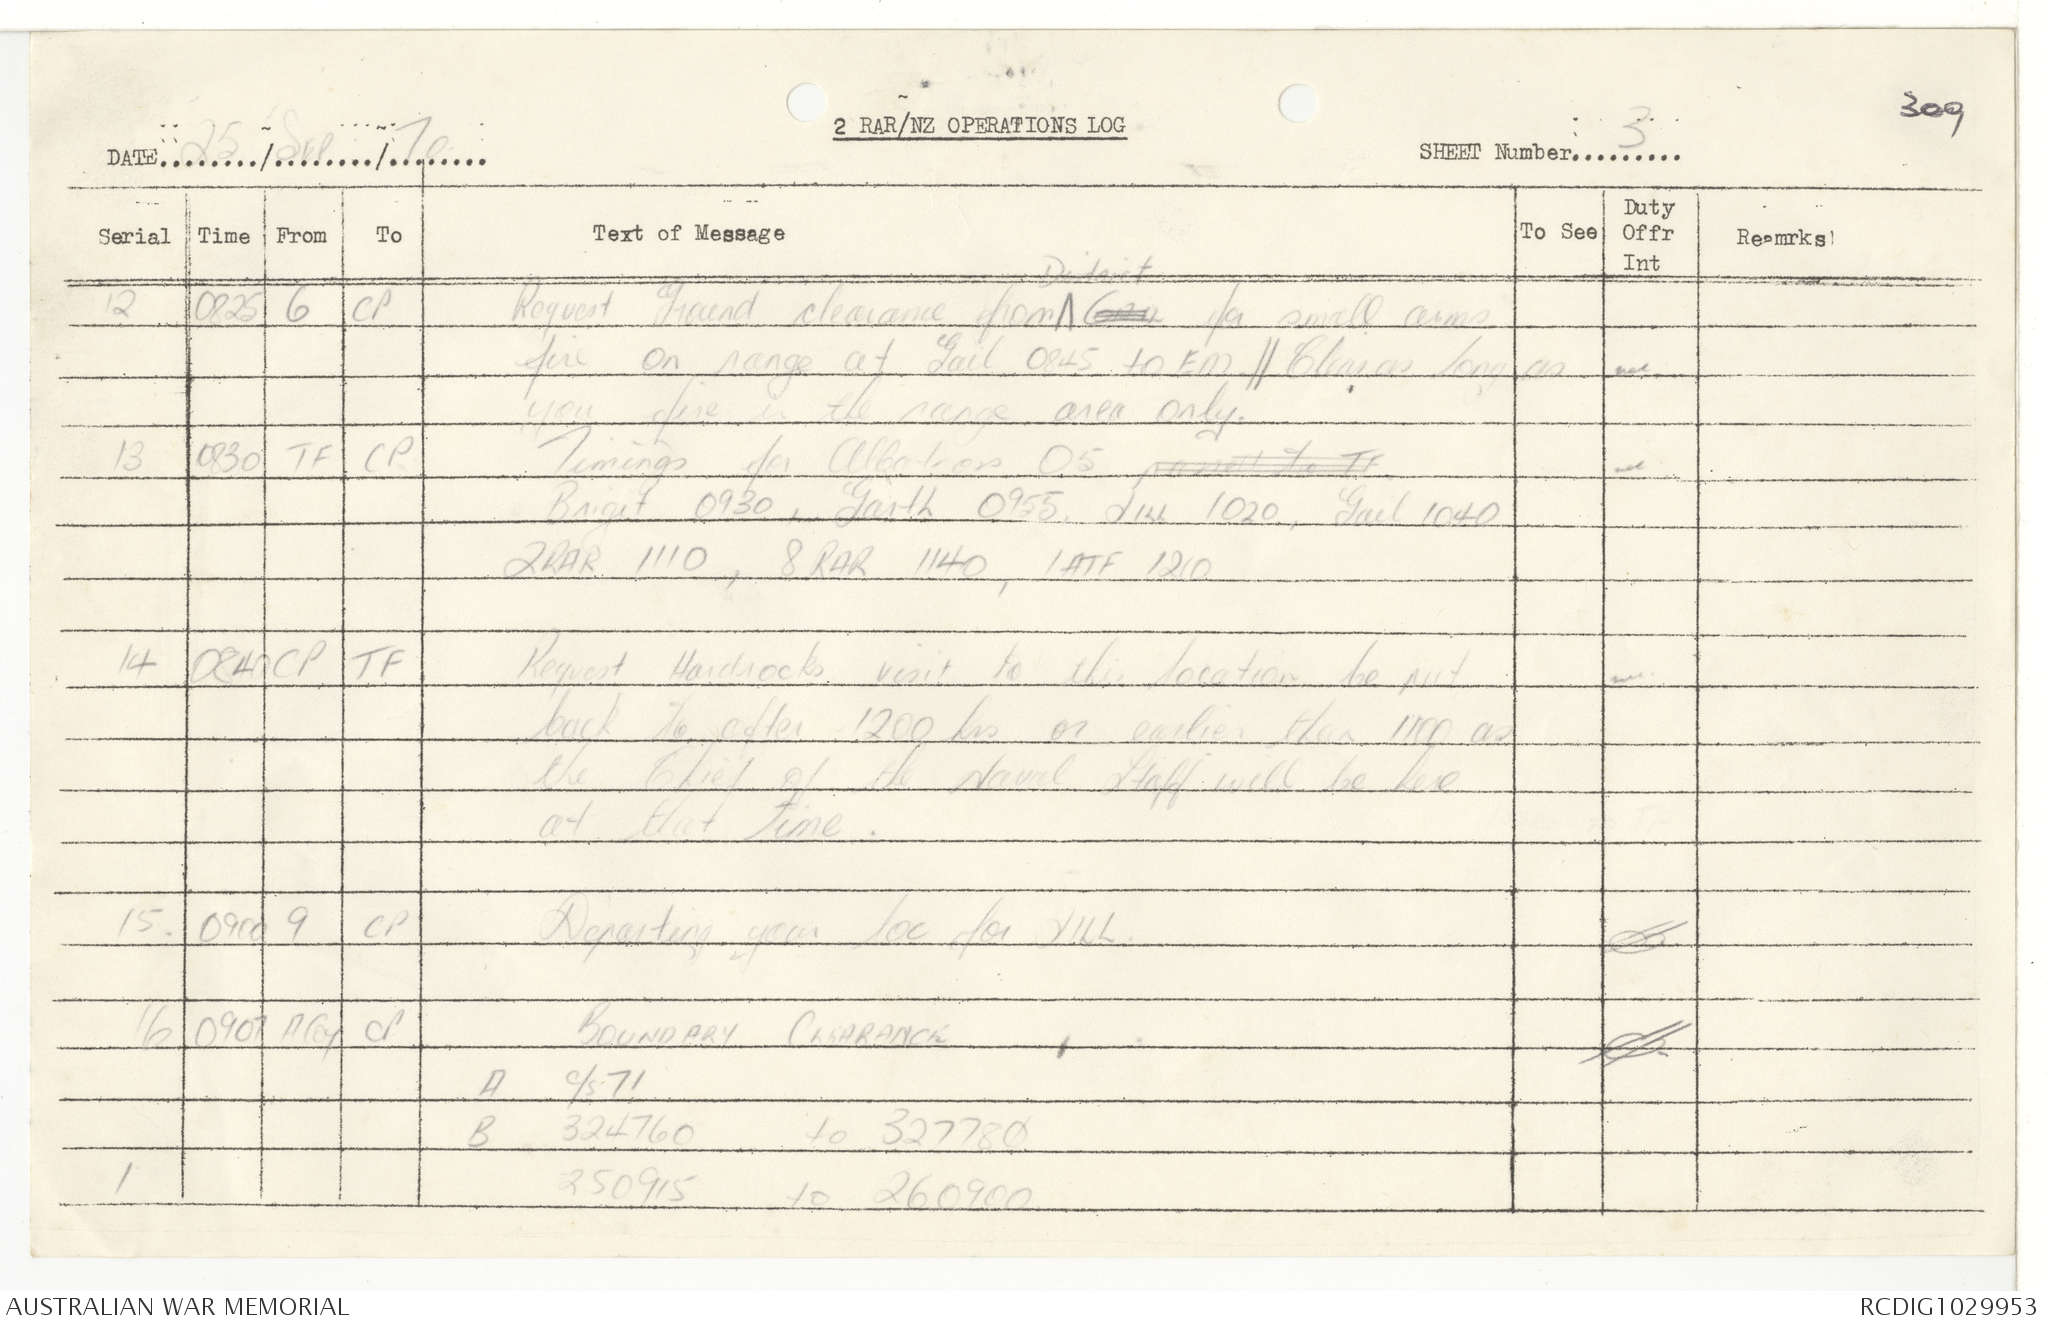 309
2 RAR/NZ OPERATIONS LOG
DATE 25 / Sep / 70
SHEET Number 3
Serial Time From To Text of Message To See Duty Offr Int Reamrks
12 0825 6 CP Request Ground clearance from District for small arms
fire on range at Gail 0845 to EM // Clear as long as
you fire in the range area only.
13 0830 TF CP Timings for Albatross 05 passed to TF
Brigit 0930, Garth 0955, JILL 1020, Gail 1040
2RAR 1110, 8 RAR 1140, 1 ATF 1210
14 0840 CP TF Request Hardrocks visit to this location be put
back to after 1200 hrs or earlier than 1100 as
the Chief of the Naval Staff will be here
at that time.
15. 0900 9 CP Departing your loc for JILL.
16 0907 A Coy CP BOUNDARY CLEARANCE
A c/s 71
B 324760 to 327780
1 250915 to 260900
AUSTRALIAN WAR MEMORIAL
RCDIG1029953